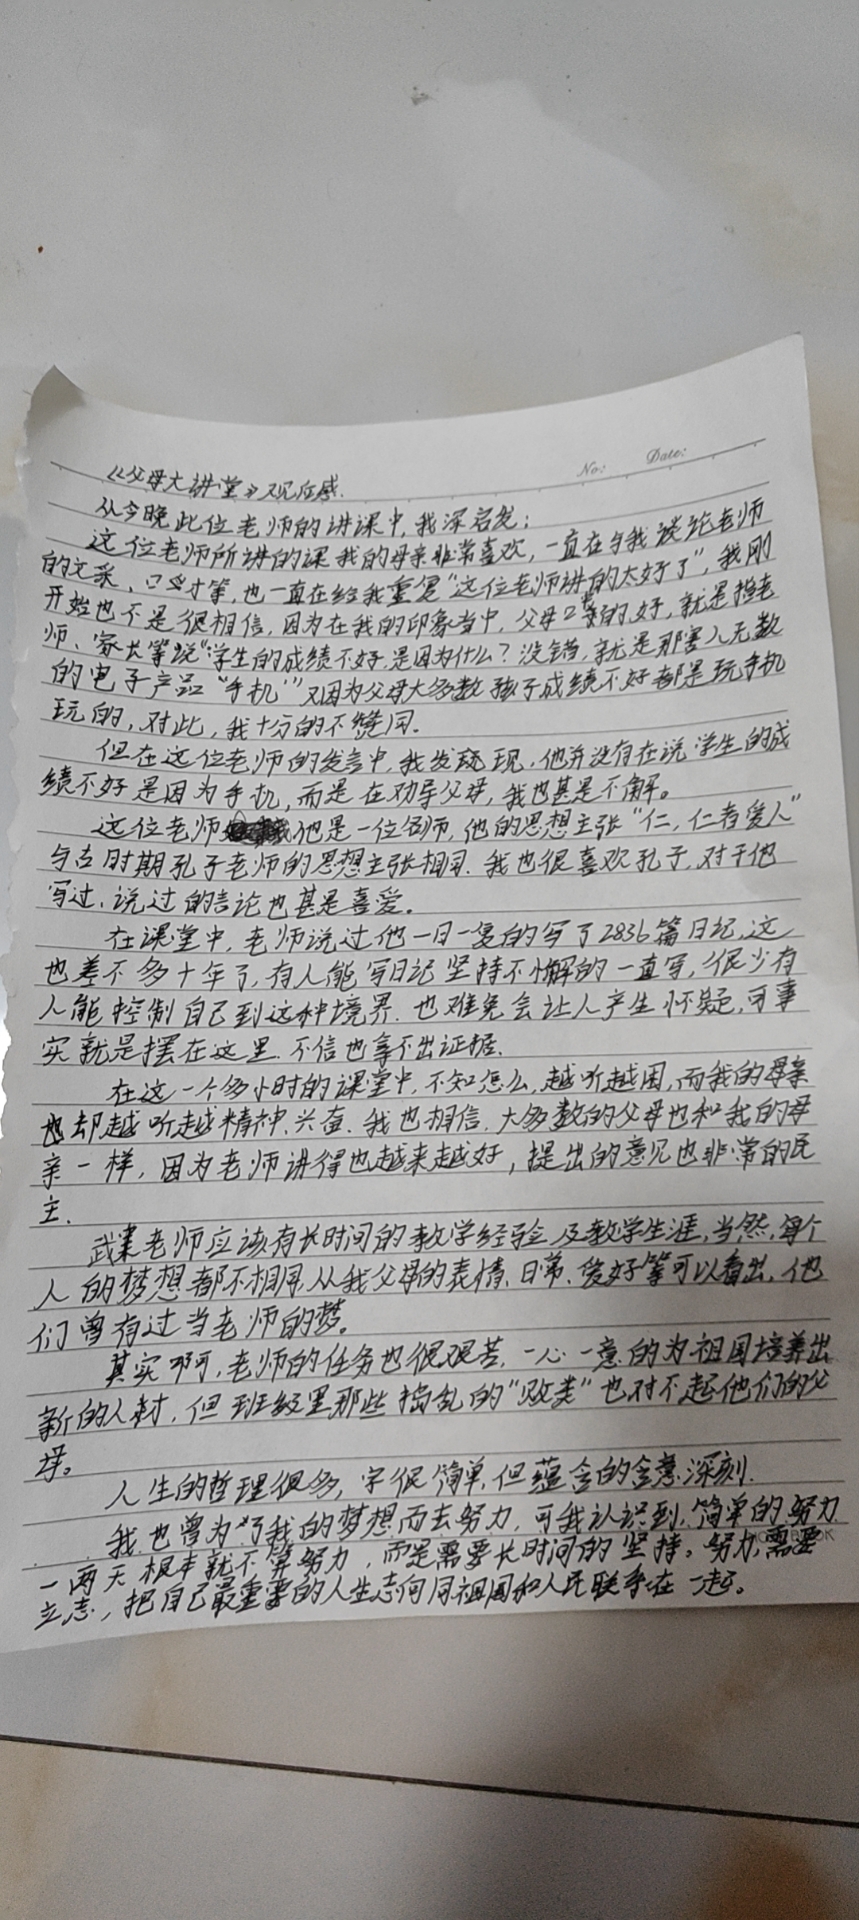 No: Date:
《父母大讲堂》观后感.
从今晚此位老师的讲课中,我深有启发:
这位老师所讲的课我的母亲非常喜欢,一直在与我谈论老师
的文采、口才等,也一直在给我重复“这位老师讲的太好了”,我刚
开始也不是很相信,因为在我的印象当中,父母的好,就是指老
师、家长等说“学生的成绩不好,是因为什么?没错,就是那害人无数
的电子产品“手机””又因为父母大多数孩子成绩不好都是玩手机
玩的,对此,我十分的不赞同.
但在这位老师的发言中,我发现,他并没有在说学生的成
绩不好是因为手机,而是在劝导父母,我也甚是不解。
这位老师他是一位名师,他的思想主张“仁,仁者爱人”
与古时期孔子老师的思想主张相同.我也很喜欢孔子,对于他
写过、说过的言论也甚是喜爱。
在课堂中,老师说过他一日一复的写了2836篇日记,这
也差不多十年了,有人能写日记坚持不懈的一直写,很少有
人能控制自己到这种境界.也难免会让人产生怀疑,可事
实就是摆在这里.不信也拿不出证据.
在这一个多小时的课堂中,不知怎么,越听越困,而我的母亲
也却越听越精神、兴奋.我也相信,大多数的父母也和我的母
亲一样,因为老师讲得也越来越好,提出的意见也非常的民
主.
老师应该有长时间的教学经验及教学生涯,当然,每个
人的梦想都不相同,从我父母的表情、日常、爱好等可以看出,他
们曾有过当老师的梦。
其实啊,老师的任务也很艰苦,一心一意的为祖国培养出
新的人材,但班级里那些捣乱的“败类”也对不起他们的父
母。
人生的哲理很多,字很简单,但蕴含的含意深刻.
我也曾为了我的梦想而去努力,可我认识到,简单的努力
一两天根本就不算努力,而是需要长时间的坚持。努力,需要
立志,把自己最重要的人生志向同祖国和人民联系在一起。